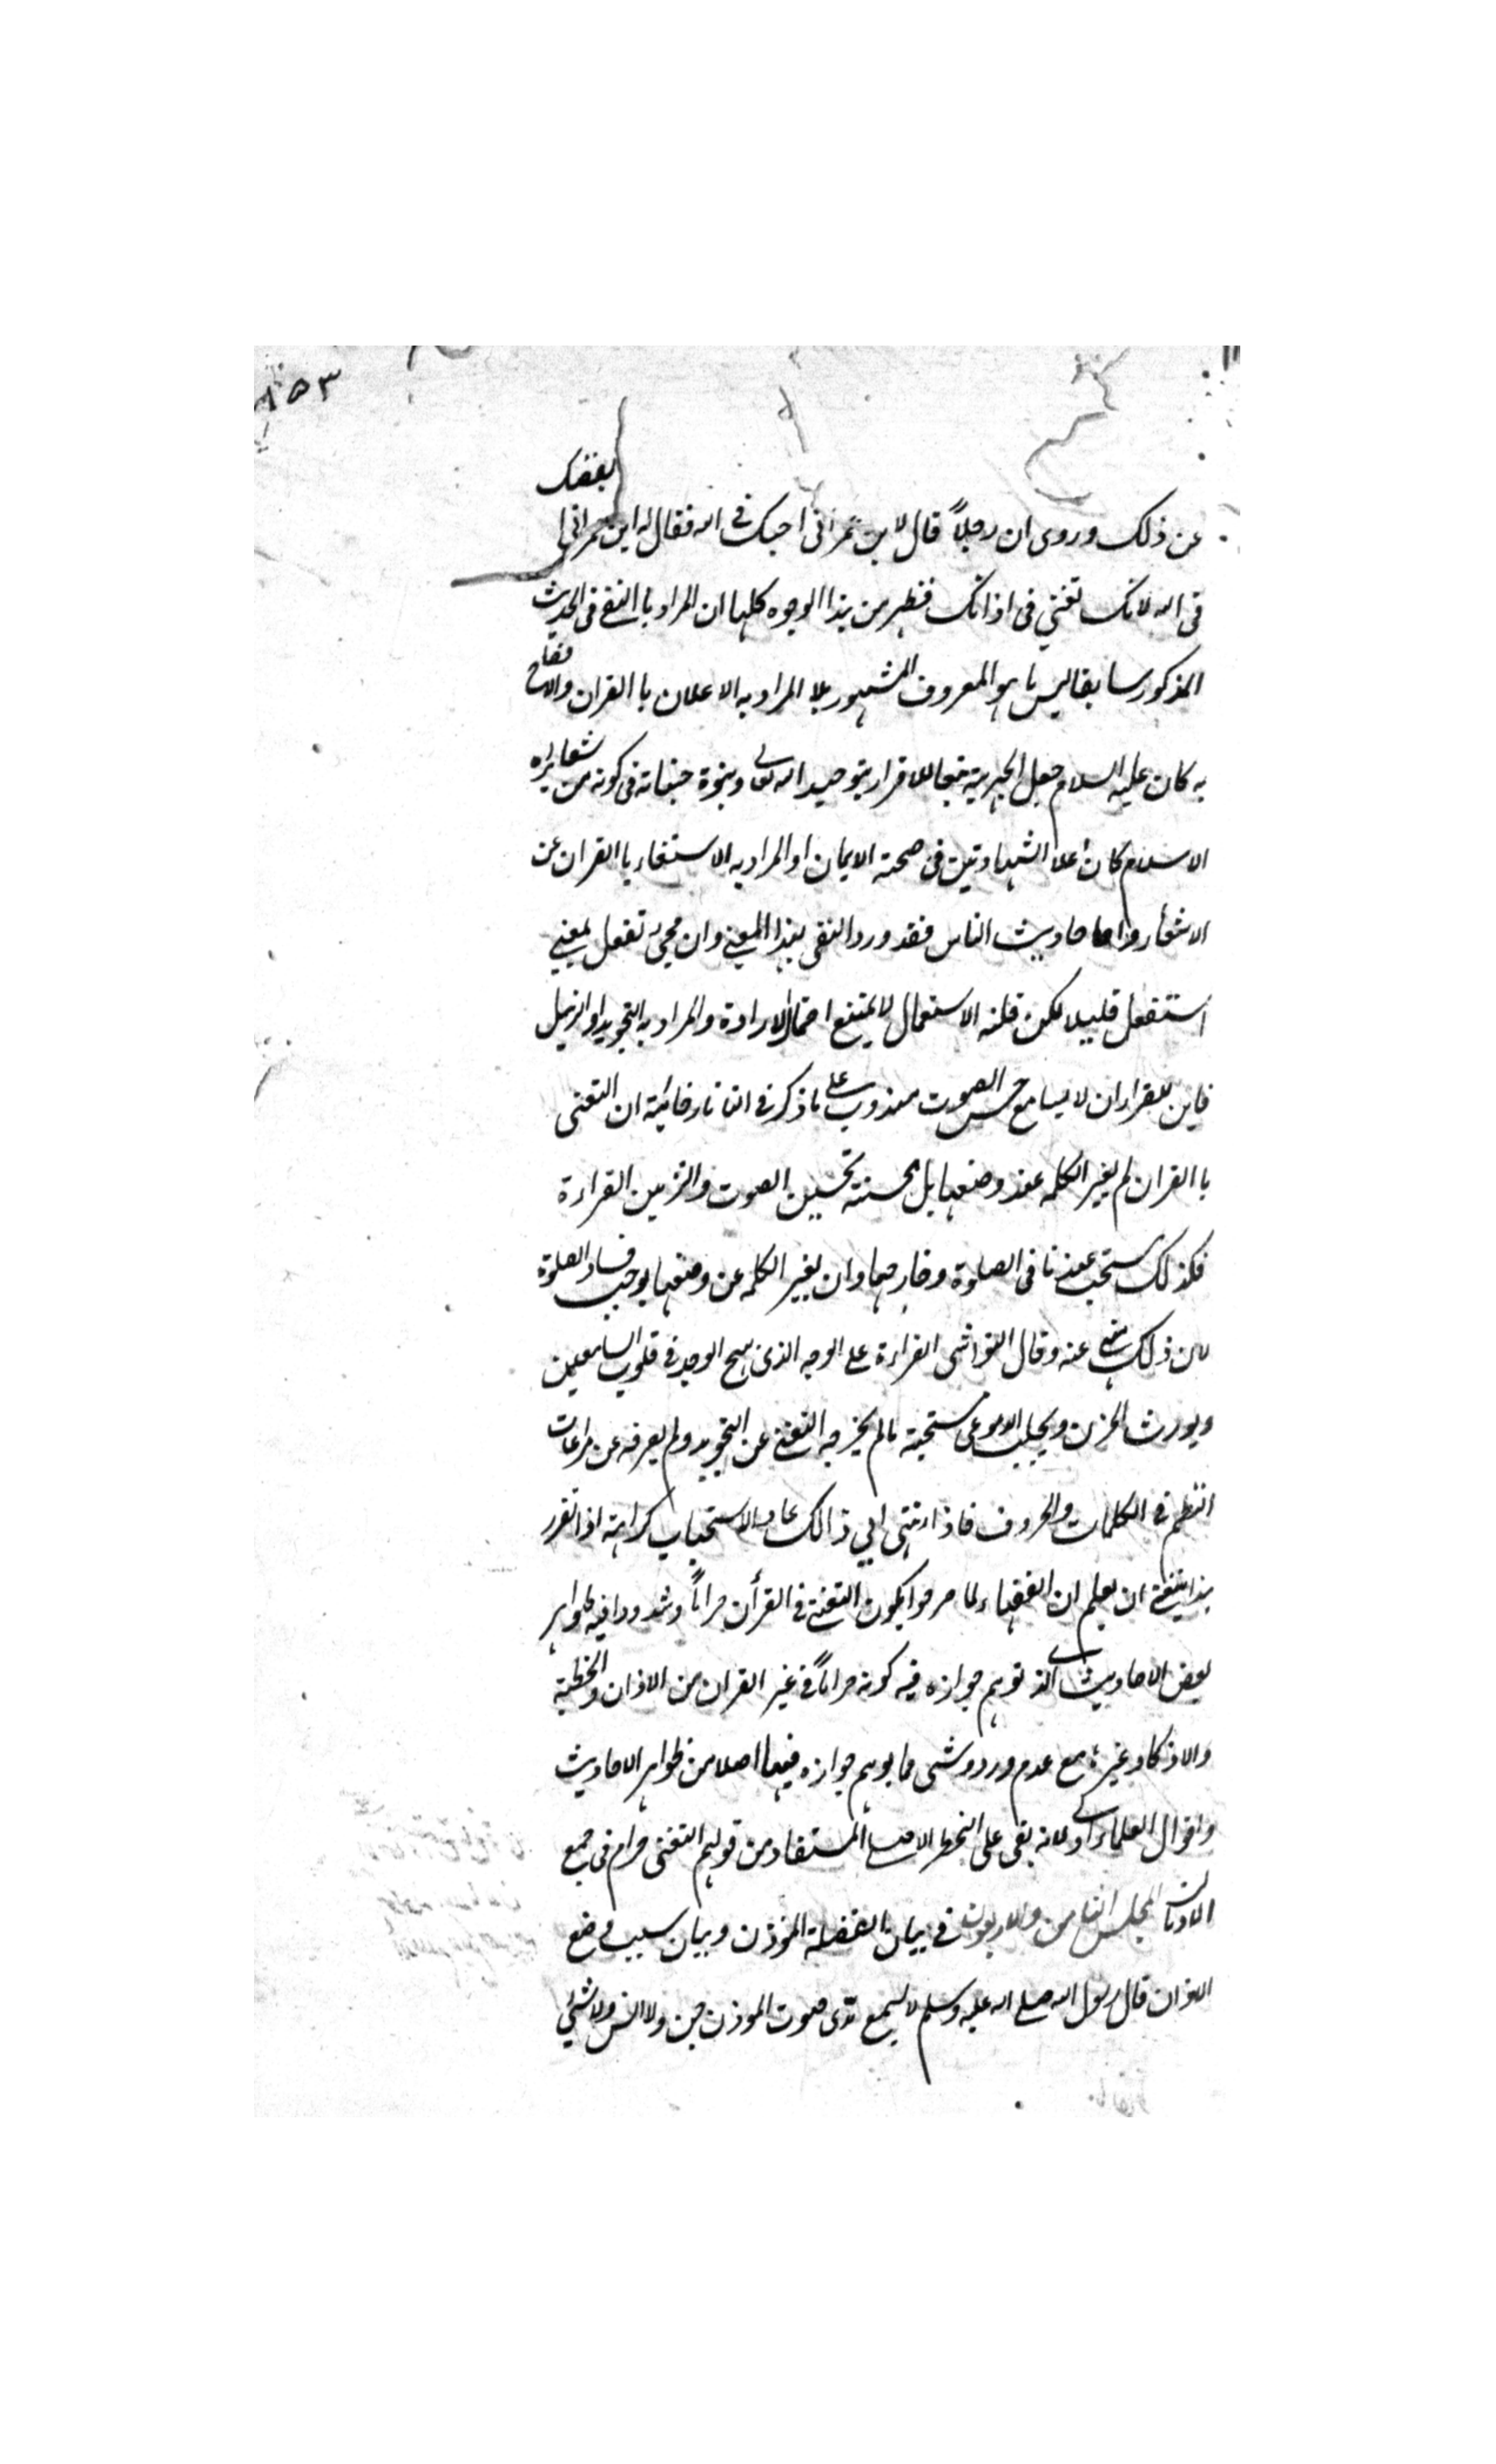 ١٥٣
عن ذلك وروى ان رجلاً قال لابن عمر انى احبك فى الله فقال له ابن عمر انى ابغضك
فى الله لانك تغنى فى اذانك فظهر من هذا الوجوه كلها ان المراد با التغنى فى الحديث
المذكور سابقا ليس ما هو المعروف المشهور بل المراد به الاعلان با القران والافصاح
به كان عليه السلام جعل الجهر به تبعا للاقرار بتوحيد الله تعالى وبنبوة فى كونه من شعايره
الاسلام كان اعلا الشهادتين فى صحته الايمان او المراد به الاستغناء با القران عن
الاشعار احاديث الناس فقد ورد التغنى بهذا المعنى وان مجىء تفعل بمعنى
استفعل قليلا لكن قلته الاستعمال لا يمنع احتمال الارادة والمراد به التجويد او الترتيل
فاين للقران لا سيما مع حسن الصوت مندوب على ما ذكر فى التاتارخانية ان التغنى
با القران لم يغير الكلمه عند وضعها بل يحسنته تحسين الصوت والتزيين القراءة
فكذلك يستحب عندنا فى الصلوة وخارجها وان يغير الكلمه عن وضعها يوجب فساد الصلوة
لان ذلك منهى عنه وقال القراءة على الوجه الذى يهيج الوجد فى قلوب السامعين
ويورث الحزن ويجلب الدموع مستحبته مالم يخرجه التغنى عن التجويد ولم يصرفه عن مراعات
النظم فى الكلمات والحروف فاذا انتهى الى ذالك عاد الاستحباب كراهته اذا تقرر
هذا ينبغى ان يعلم ان الفقهاء لما صرحوا بكون التغنى فى القرأن حراماً وشددوا فيه ظواهر
بعض الاحاديث الذى توهم جوازه فيه كونه حراماً فى غير القران من الاذان والخطبة
والاذكار وغيره مع عدم ورود شى مما يوهم جوازه فيها اصلا من ظواهر الاحاديث
واقوال العلماء اولى لانه بقى على الحظر الاصلى المستفاد من قولهم التغنى حرام فى جميع
الاديان المجلس الثامن والاربعون فى بيان الفضيلة المؤذن وبيان سبب وضع
الاذان قال رسول الله صلى الله عليه وسلم لا يسمع ندى صوت المؤذن جن ولا انس ولا شئ